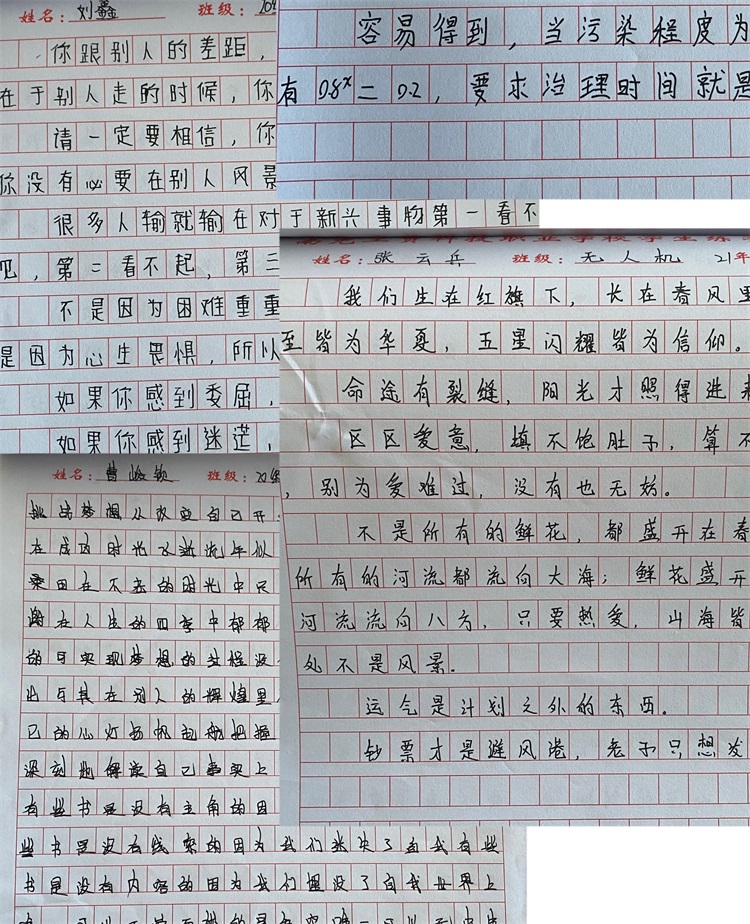 姓名：刘鑫 班级：
你跟别人的差距，
在于别人走的时候，你
请一定要相信，你
你没有必要在别人风景
很多人输就输在对于新兴事物第一看不
见，第二看不起，第三
不是因为困难重重
是因为心生畏惧，所以
如果你感到委屈，
如果你感到迷茫，
容易得到，当污染程度为
有 0.8ˣ=0.2，要求治理时间就是
姓名：张云兵 班级：无人机 21年
我们生在红旗下，长在春风里
至皆为华夏，五星闪耀皆为信仰。
命途有裂缝，阳光才照得进来
区区爱意，填不饱肚子，算不
，别为爱难过，没有也无妨。
不是所有的鲜花，都盛开在春
所有的河流都流向大海；鲜花盛开
河流流向八方，只要热爱，山海皆
处不是风景。
运气是计划之外的东西。
钞票才是避风港，老子只想发
姓名：曹 班级：
挑战梦想从改变自己开
在成长时光飞逝流年似
在人生的四季中郁郁
的可实现梦想的过程没
其在别人的辉煌里
己的心灯扬帆起航把握
深刻地解读自己事实上
有些书是没有主角的因
些书是没有线索的因为我们迷失了自我有些
书是没有内容的因为我们埋没了自我世界上